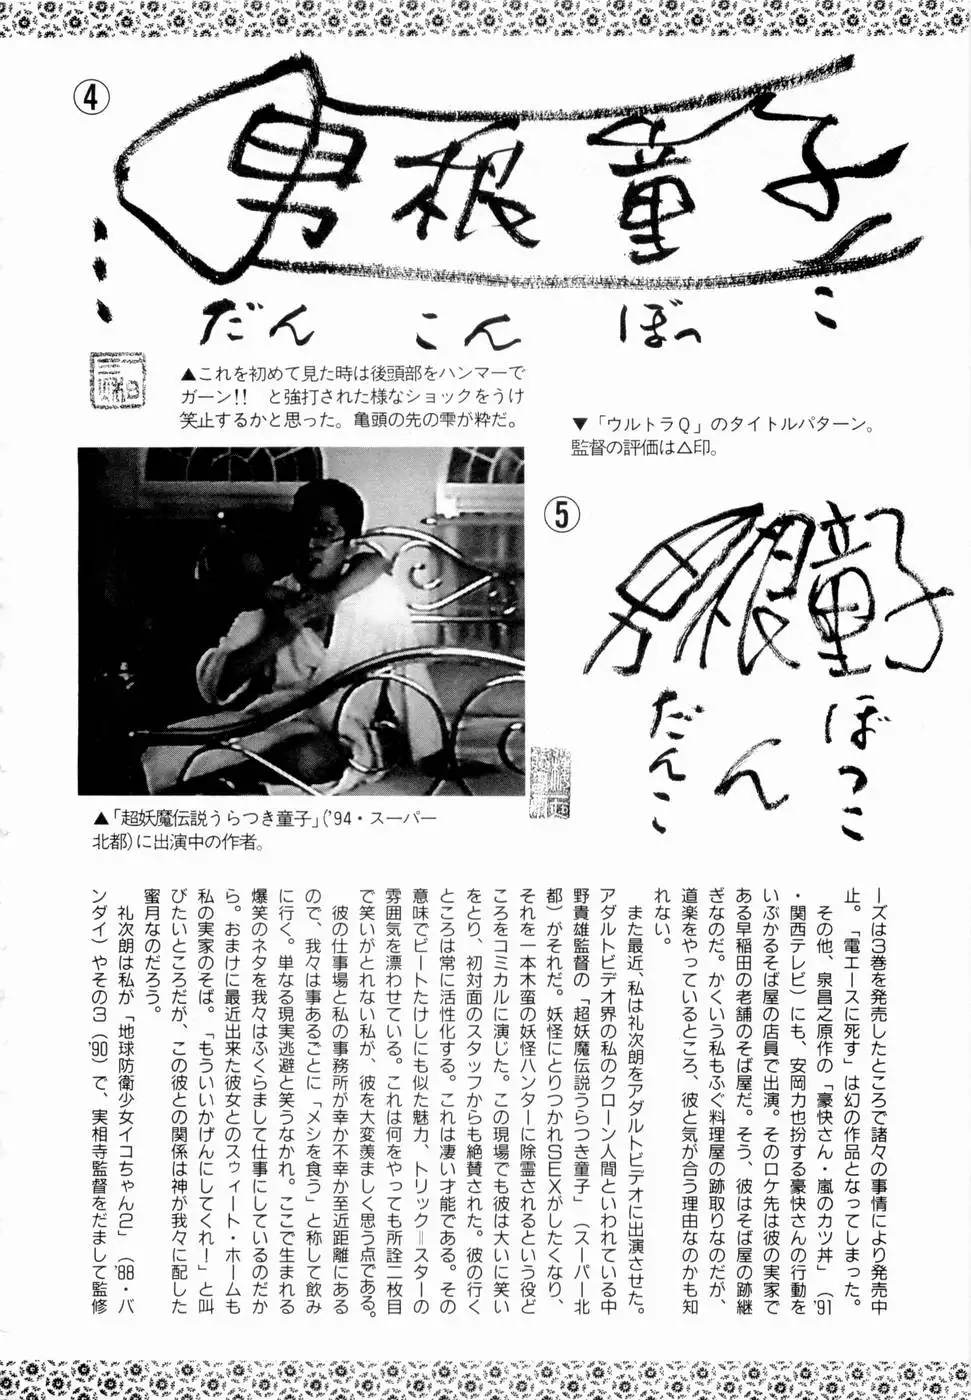 ④
男根童子
だんこんぼっこ
▲これを初めて見た時は後頭部をハンマーで
ガーン!!　と強打された様なショックをうけ
笑止するかと思った。亀頭の先の雫が粋だ。
▼「ウルトラＱ」のタイトルパターン。
監督の評価は△印。
⑤
男根童子
だんこん
ぼっこ
▲「超妖魔伝説うらつき童子」('94・スーパー
北都)に出演中の作者。
ーズは３巻を発売したところで諸々の事情により発売中
止。「電エースに死す」は幻の作品となってしまった。
その他、泉昌之原作の「豪快さん・嵐のカツ丼」('91
・関西テレビ)にも、安岡力也扮する豪快さんの行動を
いぶかるそば屋の店員で出演。そのロケ先は彼の実家で
ある早稲田の老舗のそば屋だ。そう、彼はそば屋の跡継
ぎなのだ。かくいう私もふぐ料理屋の跡取りなのだが、
道楽をやっているところ、彼と気が合う理由なのかも知
れない。
また最近、私は礼次朗をアダルトビデオに出演させた。
アダルトビデオ界の私のクローン人間といわれている中
野貴雄監督の「超妖魔伝説うらつき童子」(スーパー北
都)がそれだ。妖怪にとりつかれSEXがしたくなり、
それを一本木蛮の妖怪ハンターに除霊されるという役ど
ころをコミカルに演じた。この現場でも彼は大いに笑い
をとり、初対面のスタッフからも絶賛された。彼の行く
ところは常に活性化する。これは凄い才能である。その
意味でビートたけしにも似た魅力、トリック＝スターの
雰囲気を漂わせている。これは何をやっても所詮二枚目
で笑いがとれない私が、彼を大変羨ましく思う点である。
彼の仕事場と私の事務所が幸か不幸か至近距離にある
ので、我々は事あるごとに「メシを食う」と称して飲み
に行く。単なる現実逃避と笑うなかれ。ここで生まれる
爆笑のネタを我々はふくらまして仕事にしているのだか
ら。おまけに最近出来た彼女とのスウィート・ホームも
私の実家のそば。「もういいかげんにしてくれ！」と叫
びたいところだが、この彼との関係は神が我々に配した
蜜月なのだろう。
礼次朗は私が「地球防衛少女イコちゃん２」('88・バ
ンダイ)やその３('90)で、実相寺監督をだまして監修